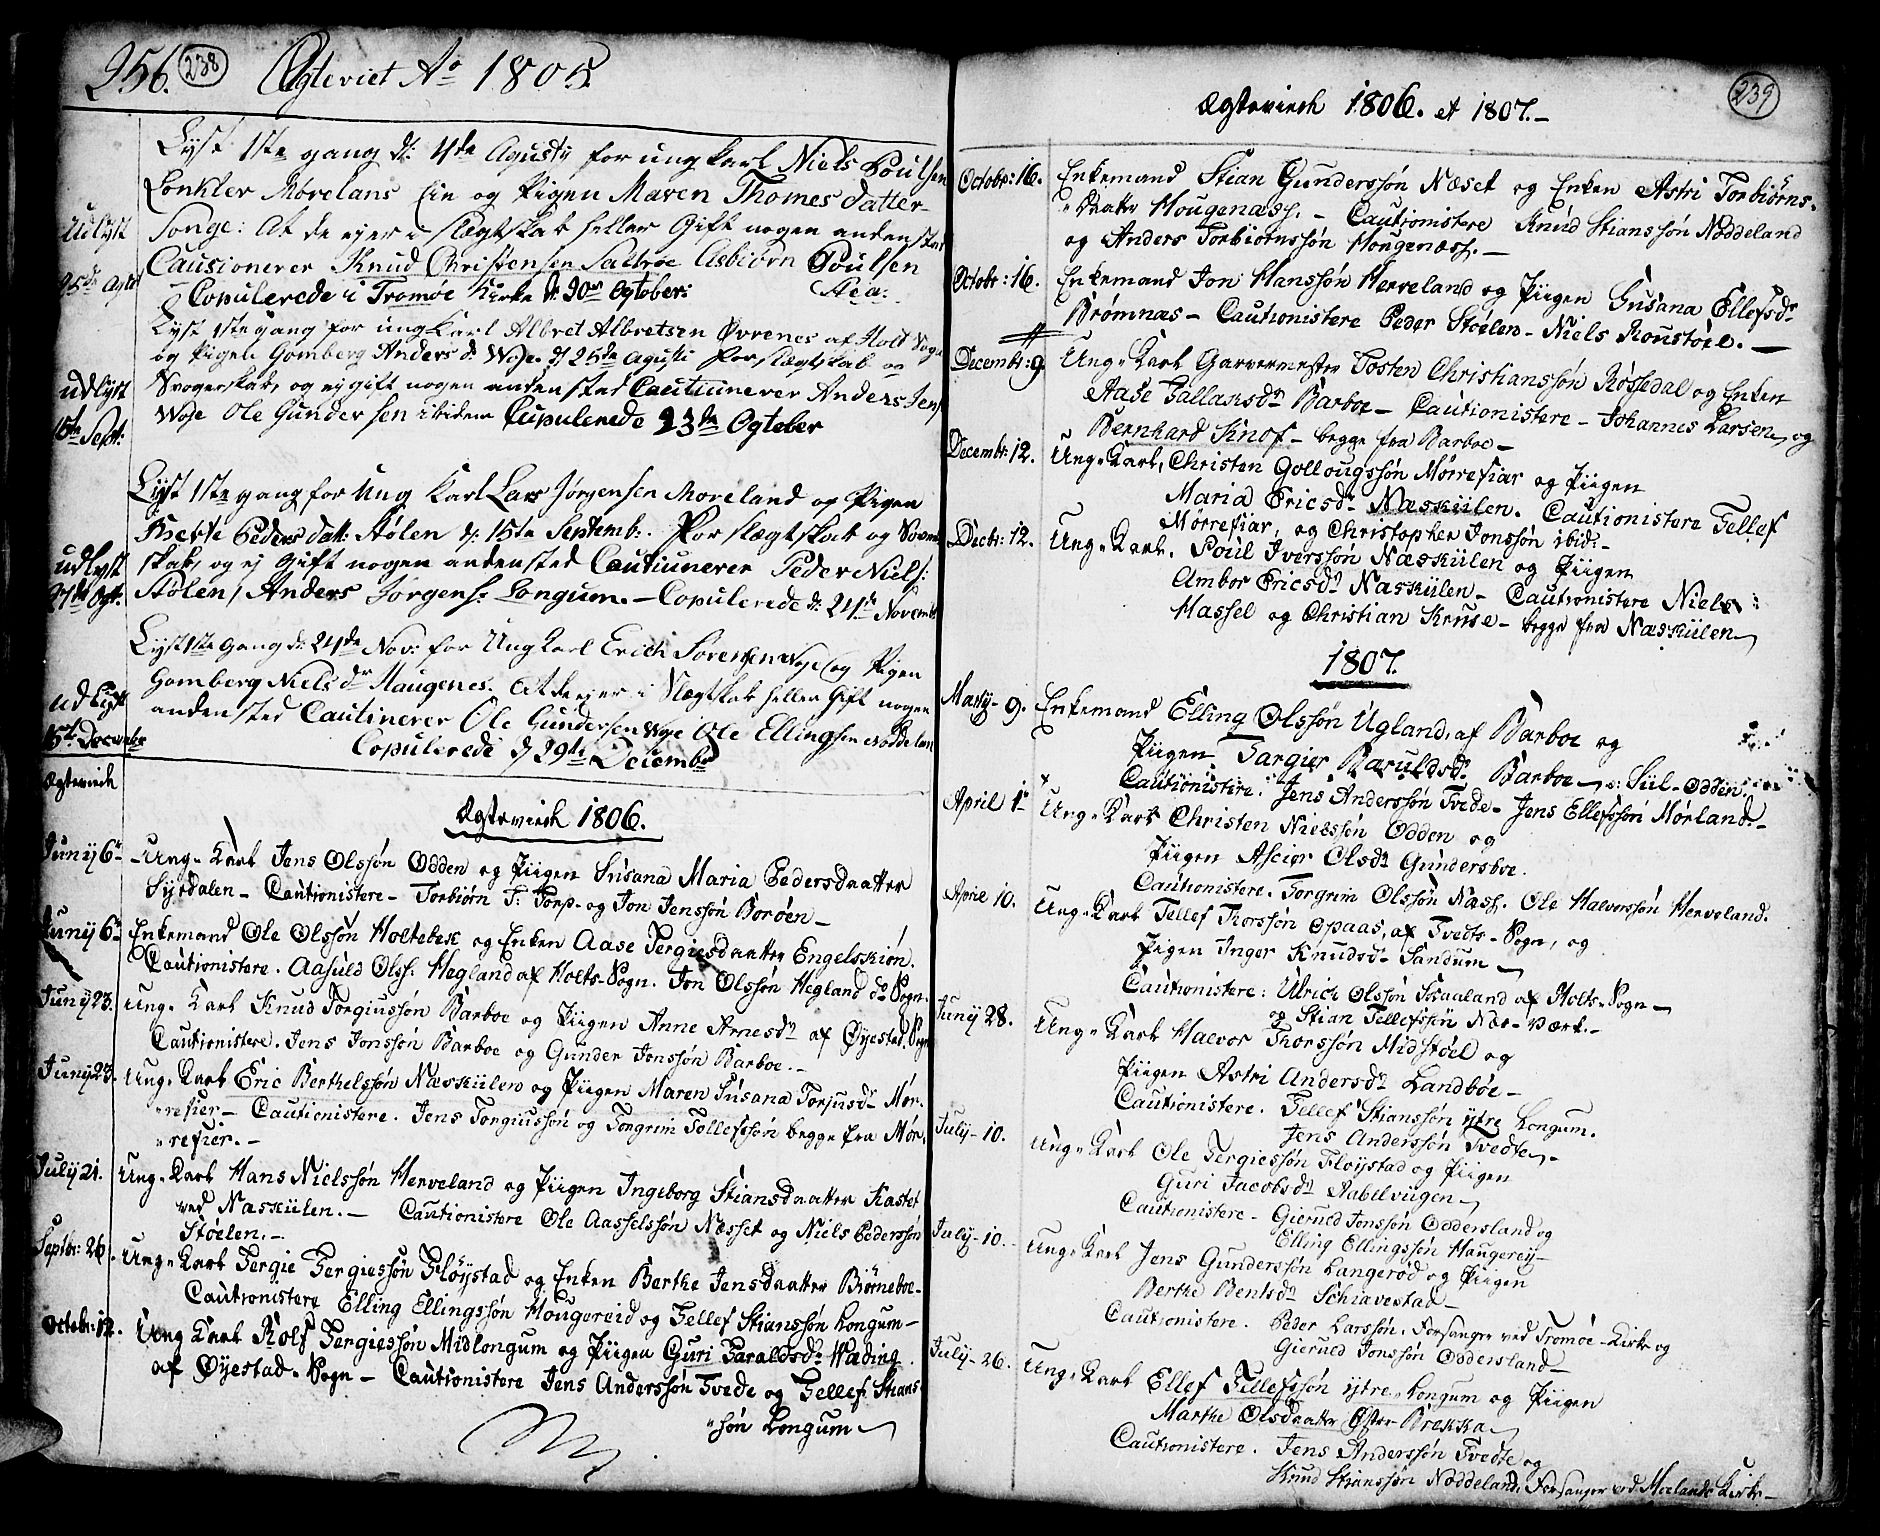 256. 238 Ægteviet Ao 1805
Lyst 1ste gang d: 4de Agusty for ung karl Niels Poulsen
Lonkler Morelans Eie og Pigen Maren Thomes datter
Songe: At de ej er i slægtskab heller Gift nogen anden sted
Udlyst
Causionerer Knud Christensen Saltroe Asbiørn Poulsen
25de Agto
Copulerede i Tromøe Kirke d: 20de Ogtober:
Lyst 1ste gang for ung Karl Albret Albretsen Øvrenes af Holt Sogn
og Pigen Gomberg Anders dr Woje d 25de Agusti for slægtskab og
Svogerskab, og ej gift nogen anden sted Cautiunerer Anders Jens
udlyst
Woje Ole Gundersen ibidem Cupulerede 23de Ogtober
15te Sept:
Lyst 1ste gang for Ung Karl Lars Jørgensen Moreland og Pigen
Kierte Peders datt: Stølen d: 15te Septemb: For slægtskab og Svoger
skab, og ej Gift nogen anden sted Cautiunerer Peder Niels:
udlyst
Stølen, Anders Jørgens: Longum. — Copulerede d: 24de Novemb
27de Ogt.
Lyst 1ste gang d: 24de Nov: for Ung Karl Erich Sorensen Woje og Pigen
Gomberg Niels dr Haugenes. At de ej er i Slægtskab heller Gift nogen
udlyst
anden sted Cautinerer Ole Gundersen Woje Ole Ellingsen Noddelan
15de Decembr
Copulerede d 29de Decembr
Ægteviede
Ægteviede 1806.
Juny 6te Ung-Karl Jens Olssøn Odden og Piigen Susana Maria Pedersdaatter
Syrdalen — Cautionistere — Torbiørn T: Torp — og Jon Jenssøn Borøen —
Juny 6te Enkemand Ole Olssøn Holtebek og Enken Aase Tergiesdaatter Engelskiøn.
Cautionistere. Aasuld Olss: Hegland af Holts-Sogn. Jon Olssøn Hegland do Sogn.
Juny 23. Ung-Karl Knud Torgiussøn Barboe og Piigen Anne Arnesdr af Øyestad Sogn
Cautionistere. Jens Jonssøn Barboe og Gunder Jonssøn Barboe. —
Juny 23. Ung-Karl Eric Berthelssøn Næskiilen og Piigen Maren Susana Torjusdr Mør-
refier — Cautionistere. Jens Torgiussøn og Torgrim Tollefssøn begge fra Mør-
refier. —
July 21. Ung-Karl Hans Nielssøn Herveland og Piigen Ingeborg Stiansdaatter Kastet
ved Næskiilen. — Cautionistere Ole Aasselssøn Næsset og Niels Pederssøn
Støelen. —
Septbr: 26. Ung-Karl Tergie Tergiessøn Fløystad og Enken Berthe Jensdaatter Biørneboe-
Cautionistere Elling Ellingssøn Hougereid og Tellef Stianssøn Longum —
Octobr: 12. Ung Karl Rolf Tergiessøn Midlongum og Piigen Guri Taraldsdr Wæding
af Øyestad-Sogn — Cautionistere Jens Anderssøn Tvede og Tellef Stians-
søn Longum
Ægteviede 1806. et 1807. — 239
Octobr: 16. Enkemand Stian Gunderssøn Næset og Enken Astri Torbiørns-
daatter Hougenæss. — Cautionistere Knud Stianssøn Noddeland
og Anders Torbiørnssøn Hougenæss. —
Octobr: 16. Enkemand Jon Hanssøn Herveland og Piigen Susana Ellefsdr
Brømnæs — Cautionistere Peder Støelen — Niels Roustøle. —
Decembr: 9 Ung-Karl Garvermester Tosten Christianssøn Røssedal og Enken
Aase Tallaksdr Barboe — Cautionistere — Johannes Larsen og
Bernhard Knof — begge fra Barboe —
Decembr: 12. Ung-Karl, Christen Gollougssøn Mørrefiær og Piigen
Maria Ericsdr Næskiilen. Cautionistere Tellef
Mørrefiær, og Christopher Jonssøn ibid: —
Decbr: 12. Ung-Karl. Poul Iverssøn Næskiilen og Piigen
Ambor Ericsdr Næskiilen — Cautionistere Niels
Hassel og Christian Kruse — begge fra Næskiilen
1807.
Marty — 9. Enkemand Elling Olssøn Ugland, af Barboe og
Piigen Targier Baruldsdr Barboe — Siil-Odden.
Cautionistere: Jens Anderssøn Tvede — Jens Ellefssøn Mørland. —
April 1te Ung-Karl Christen Nielssøn Odden og
Piigen Ascier Olsdr Gundersboe.
Cautionistere. Torgrim Olssøn Næss. Ole Halvorssøn Herveland.
April 10. Ung-Karl Tellef Thorssøn Opaas, af Tvedts-Sogn, og
Piigen Inger Knudsdr Sandum —
Cautionistere: Ulrich Olssøn Skaaland af Holts-Sogn —
og Stian Tellefssøn Næs-Værk. —
Juny 28. Ung-Karl Halvor Thorssøn Midstøel og
Piigen Astri Andersdr Landbøe —
Cautionistere. Tellef Stianssøn ytre Longum.
Jens Anderssøn Tvedte —
July — 10. Ung-Karl Ole Tergiessøn Fløystad og Piigen
Guri Jacobsdr Aabelviigen
Cautionistere — Gieruld Jonssøn Oddersland og
Elling Ellingssøn Haugerey —
July — 10. Ung-Karl Jens Gunderssøn Langerød og Piigen
Berthe Bentsdr Schiavestad —
Cautionistere. Peder Larssøn, Forsanger ved Tromøe-Kirke og
Gieruld Jonssøn Oddersland —
July — 26. Ung-Karl Ellef Tellefssøn ytre-Longum og Piigen
Marthe Olsdaatter Øster Brekka
Cautionistere. Jens Anderssøn Tvedte og
Knud Stianssøn Noddeland, Forsanger ved Moelands Kirke —